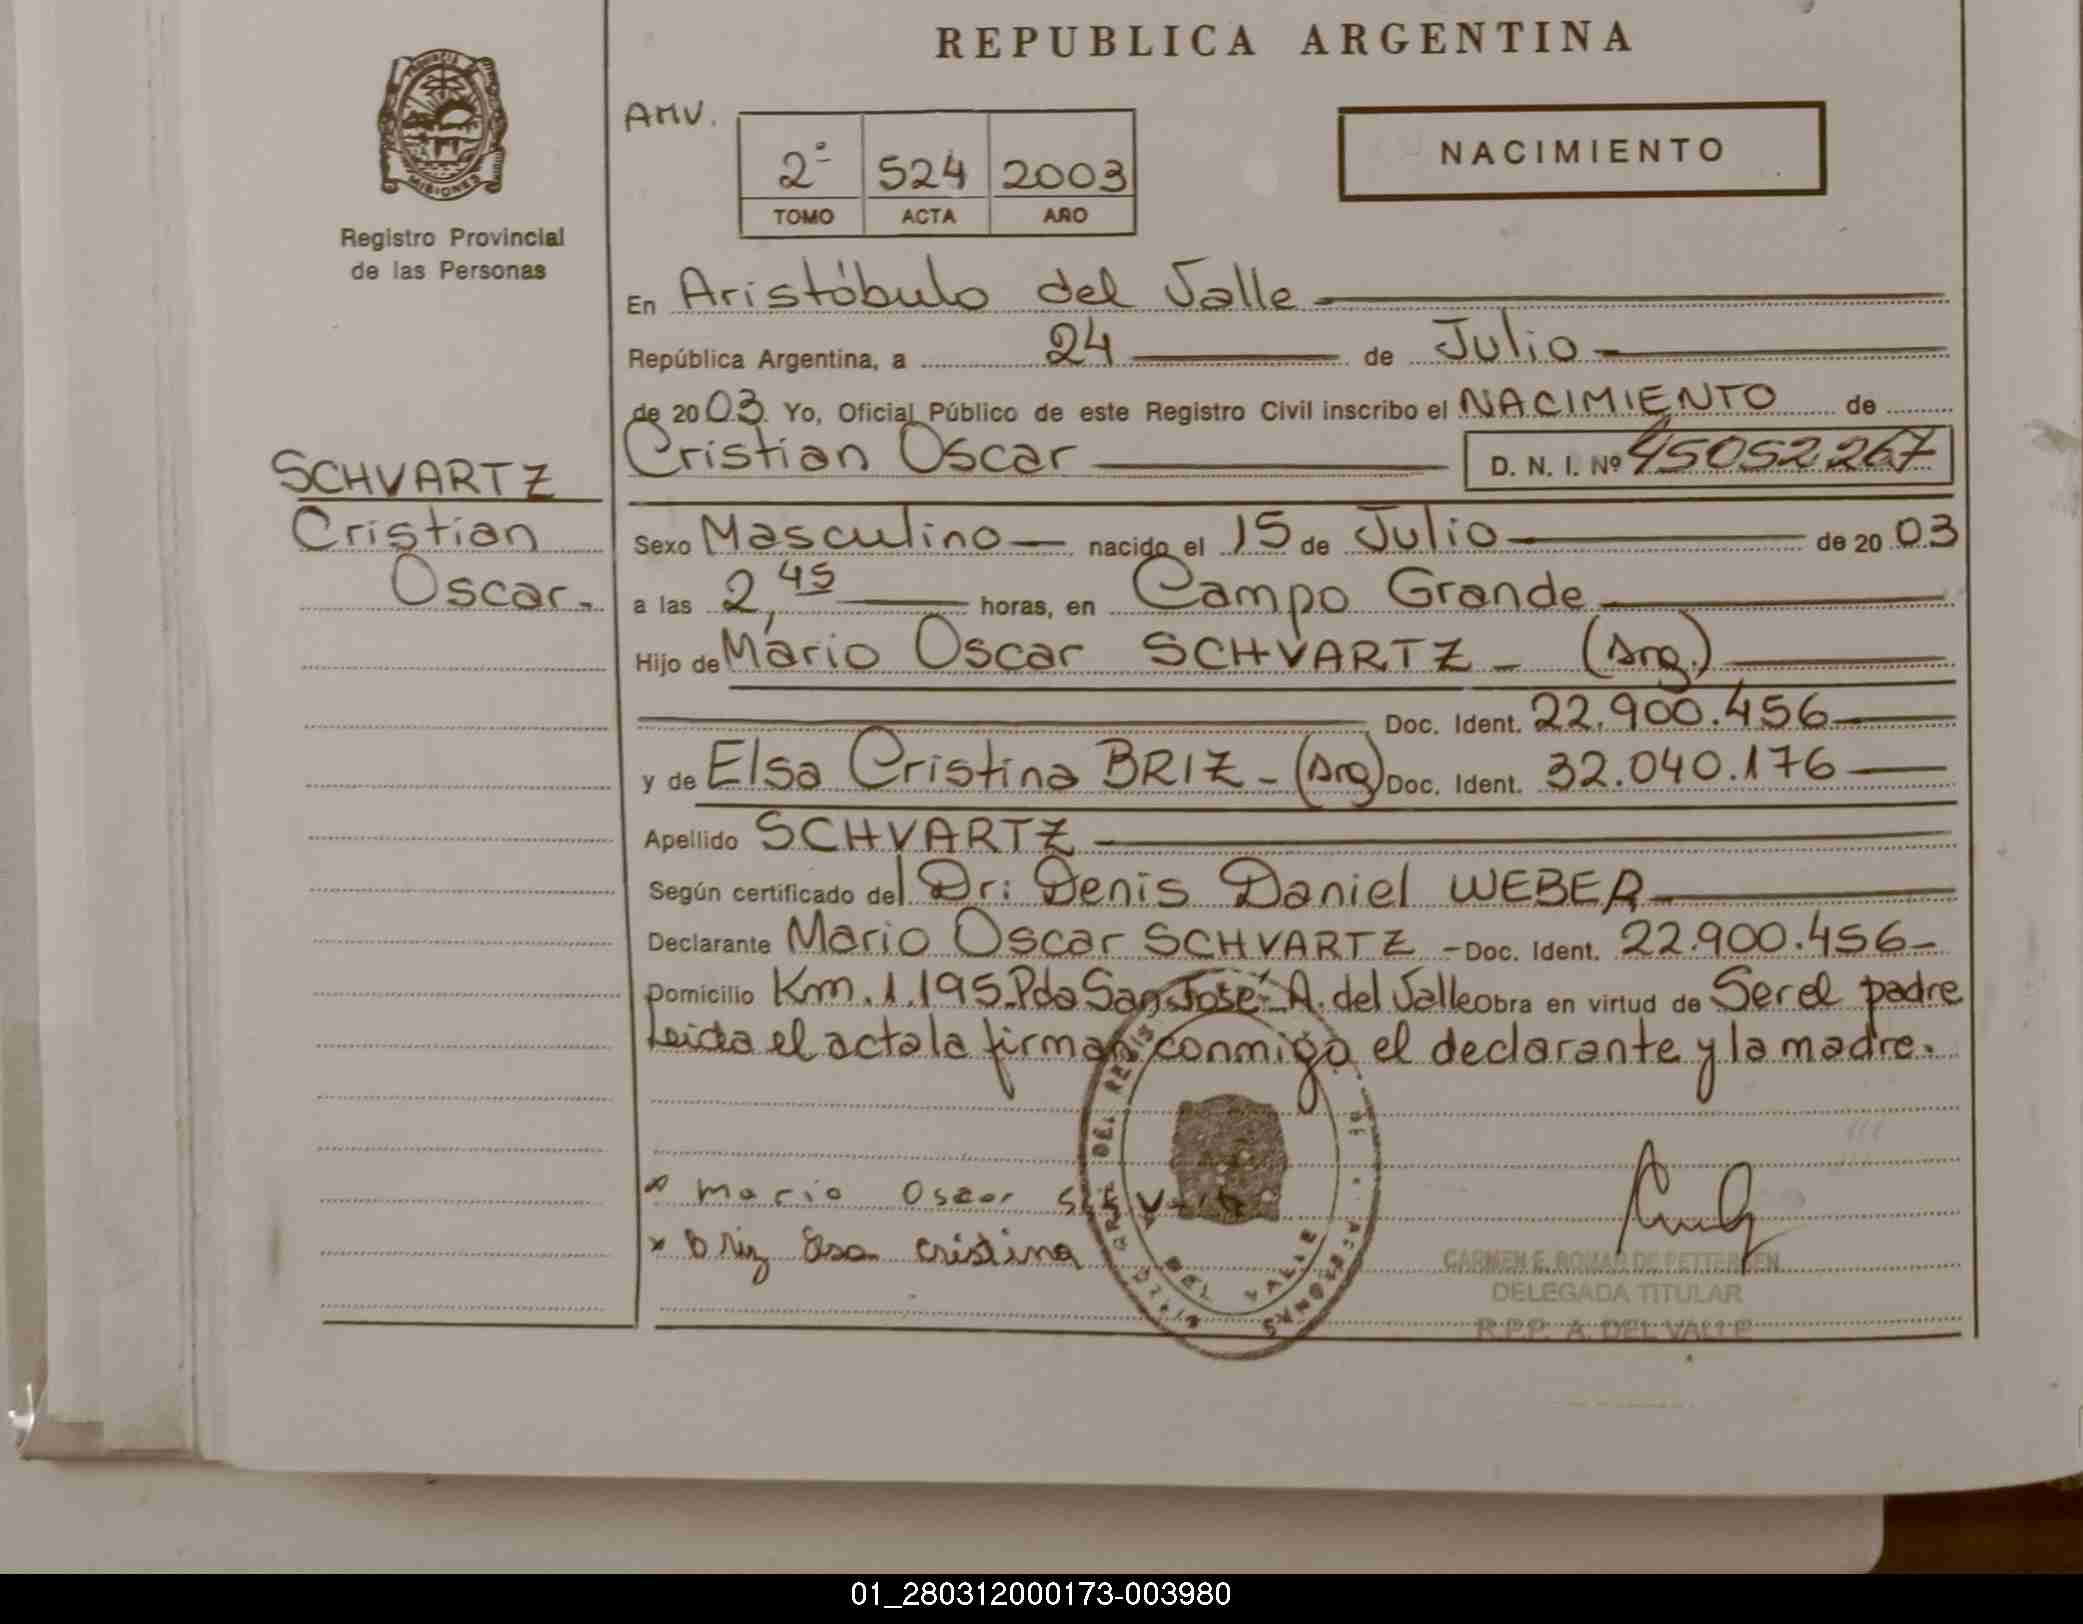 REPUBLICA ARGENTINA
AMV.
2º 524 2003
TOMO ACTA AÑO
NACIMIENTO
MISIONES
Registro Provincial
de las Personas
En Aristóbulo del Valle
República Argentina, a 24 de Julio
de 2003. Yo, Oficial Público de este Registro Civil inscribo el NACIMIENTO de
Cristian Oscar D. N. I. Nº 45052267
SCHVARTZ
Cristian
Oscar.
Sexo Masculino nacido el 15 de Julio de 2003
a las 2,45 horas, en Campo Grande
Hijo de Mario Oscar SCHVARTZ (Arg.)
Doc. Ident. 22.900.456
y de Elsa Cristina BRIZ - (Arg) Doc. Ident. 32.040.176
Apellido SCHVARTZ
Según certificado del Dr: Denis Daniel WEBER
Declarante Mario Oscar SCHVARTZ - Doc. Ident. 22.900.456
Domicilio Km. 1.195. Pdo San José - A. del Valle obra en virtud de Ser el padre
Leida el acta la firman conmigo el declarante y la madre.
x Mario Oscar
x Briz Elsa cristina
DEL VALLE
CARMEN E. ROMAO DE PETTERSEN
DELEGADA TITULAR
R.P.P. A. DEL VALLE
01_280312000173-003980